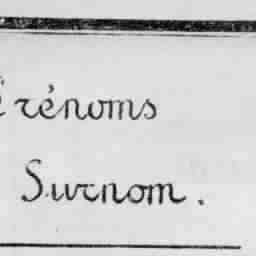 Prénoms
Surnom.